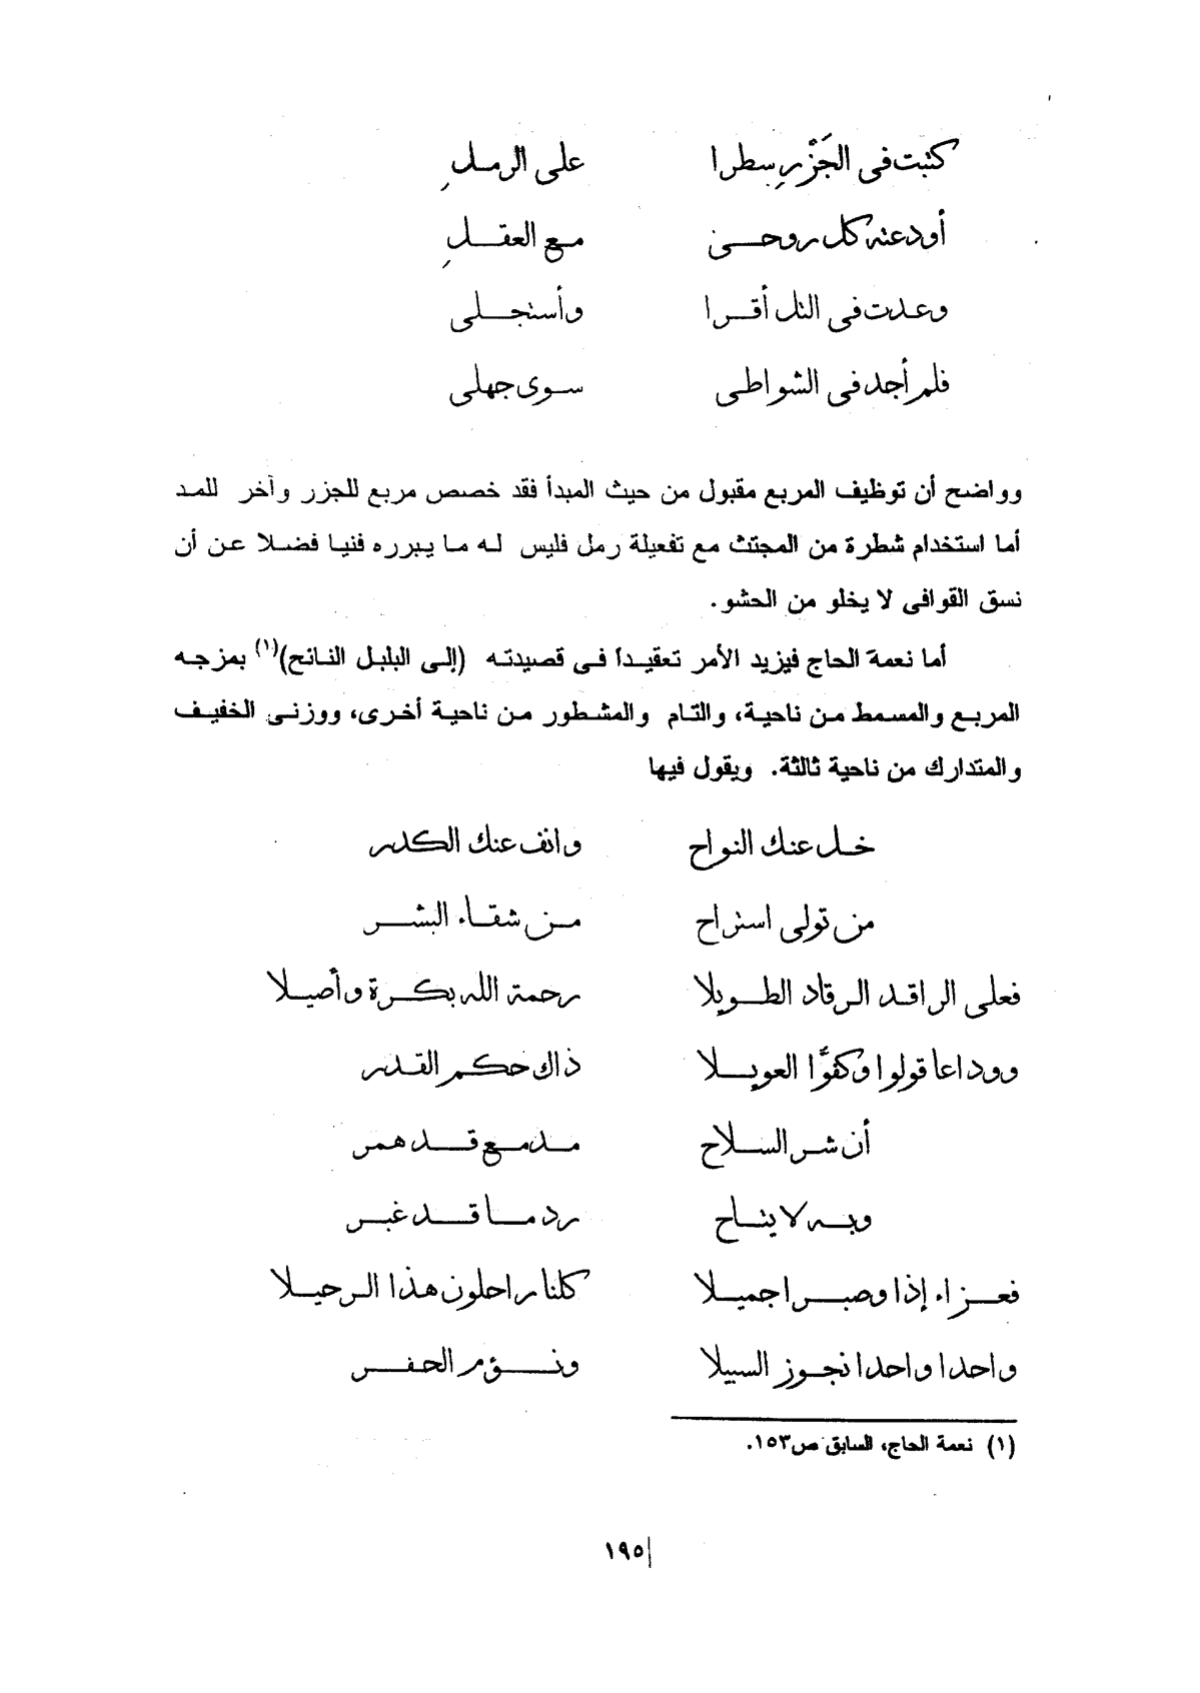 كتبت فى الجَزْرِ سطرا على الرمـلِ
أودعته كل روحـى مـع العقـلِ
وعدت فى التل أقـرا وأستجـلى
فلم أجد فى الشواطى سـوى جهلى
وواضح أن توظيف المربع مقبول من حيث المبدأ فقد خصص مربع للجزر وآخر للمد
أما استخدام شطرة من المجتث مع تفعيلة رمل فليس له ما يبرره فنيا فضلا عن أن
نسق القوافى لا يخلو من الحشو.
أما نعمة الحاج فيزيد الأمر تعقيداً فى قصيدته (إلى البلبل النائح)(١) بمزجه
المربع والمسمط من ناحية، والتام والمشطور من ناحية أخرى، ووزنى الخفيف
والمتدارك من ناحية ثالثة. ويقول فيها
خـل عنك النواح وانف عنك الكدر
من تولى استراح مـن شقـاء البشـر
فعلى الراقـد الـرقاد الطـويلا رحمة الله بكـرة وأصيـلا
ووداعا قولوا وكفوَّا العويـلا ذاك حكـم القـدر
أن شـر السـلاح مـدمـع قـد همر
وبـه لا يتـاح رد مـا قـد غبـر
فعـزاء إذا وصبـرا جميـلا كلنا راحلون هذا الـرحيـلا
واحدا واحدا نجـوز السبيلا ونـؤم الحفـر
(١) نعمة الحاج، السابق ص١٥٣.
١٩٥